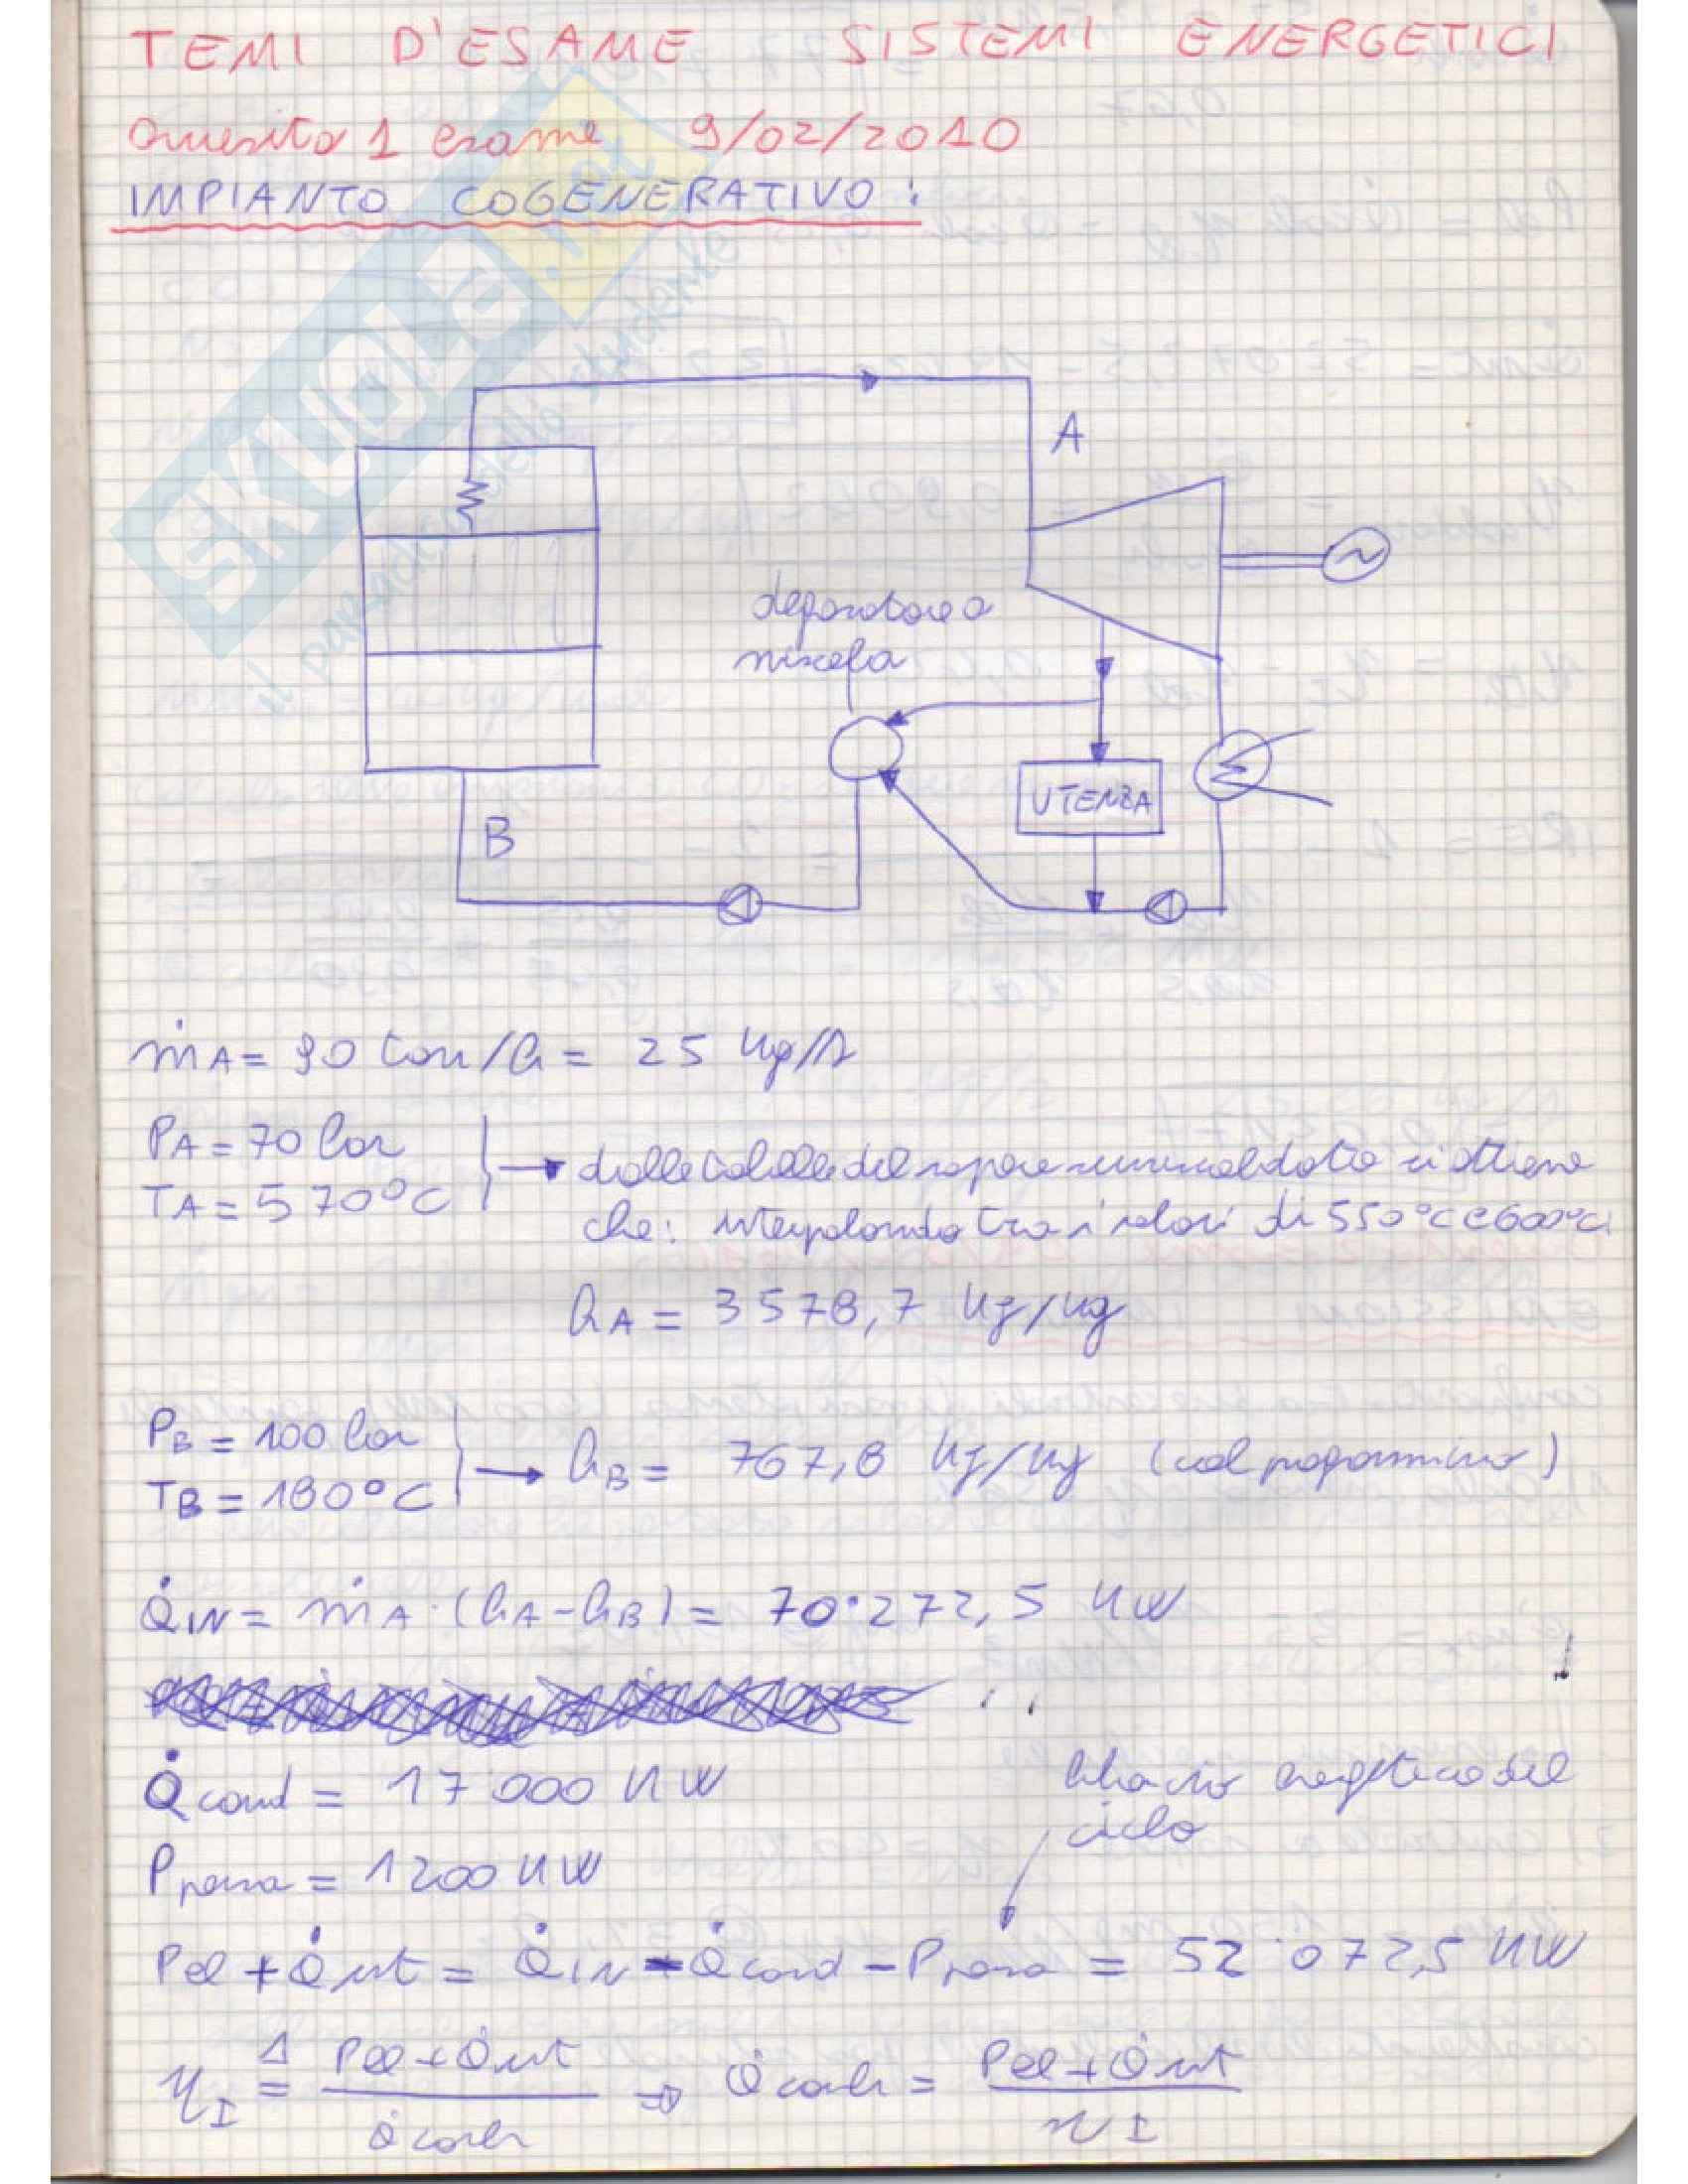 TEMI D'ESAME SISTEMI ENERGETICI
Quesito 1 esame 9/02/2010
IMPIANTO COGENERATIVO:
SKUOLA.net
il paradiso dello studente
A
degasatore a
miscela
UTENZA
B
ṁA = 90 ton/h = 25 kg/s
PA = 70 bar
TA = 570°C
dalle tabelle del vapore surriscaldato si ottiene
che: interpolando tra i valori di 550°C e 600°C:
hA = 3578,7 kJ/kg
PB = 100 bar
TB = 180°C
hB = 767,8 kJ/kg (col programmino)
Q̇IN = ṁA · (hA - hB) = 70'272,5 kW
Q̇cond = 17'000 kW
bilancio energetico del
ciclo
Ppersa = 1200 kW
Pel + Q̇ut = Q̇IN - Q̇cond - Ppersa = 52'072,5 kW
ηI ≜ Pel + Q̇ut / Q̇comb → Q̇comb = Pel + Q̇ut / ηI